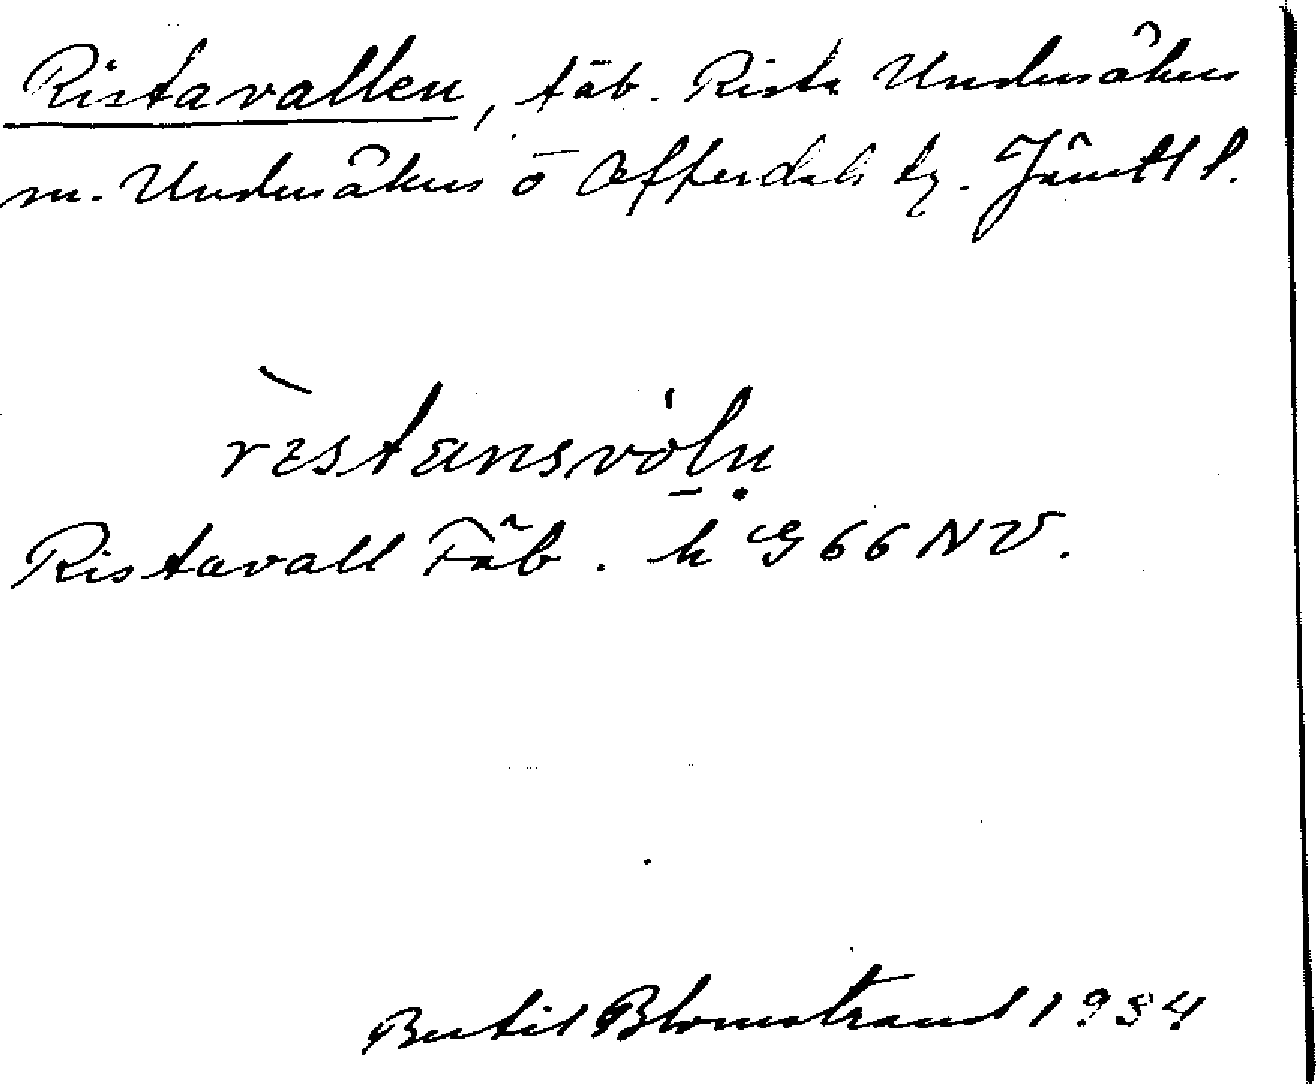 Ristavallen, fäb. Rista Undersåkers
sn. Undersåkers o Offerdals tg. Jämtl l.
rɪstansvòlṇ
Ristavall Fäb. k G 66 NV.
Bertil Blomstrand 1934